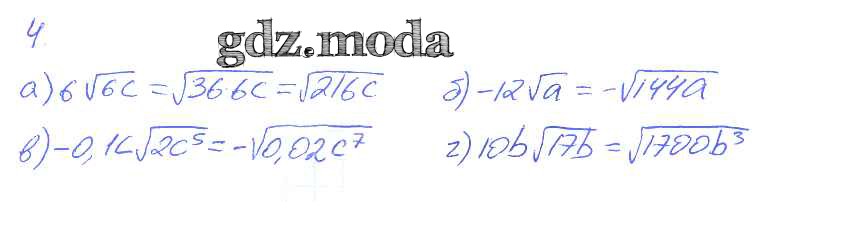 4.
gdz.moda
а) 6√6c = √36·6c = √216c б) -12√a = -√144a
в) -0,1c√2c⁵ = -√0,02c⁷ г) 10b√17b = √1700b³